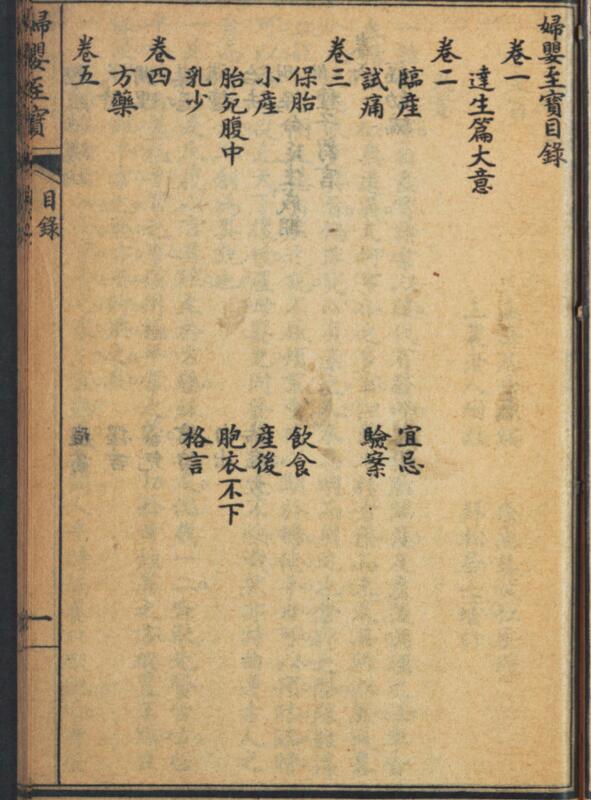 婦嬰至寶目錄
卷一
達生篇大意
卷二
臨產 宜忌
試痛 驗案
卷三
保胎 飲食
小產 產後
胎死腹中 胞衣不下
乳少 格言
卷四
方藥
卷五
婦嬰至寶
目錄
一